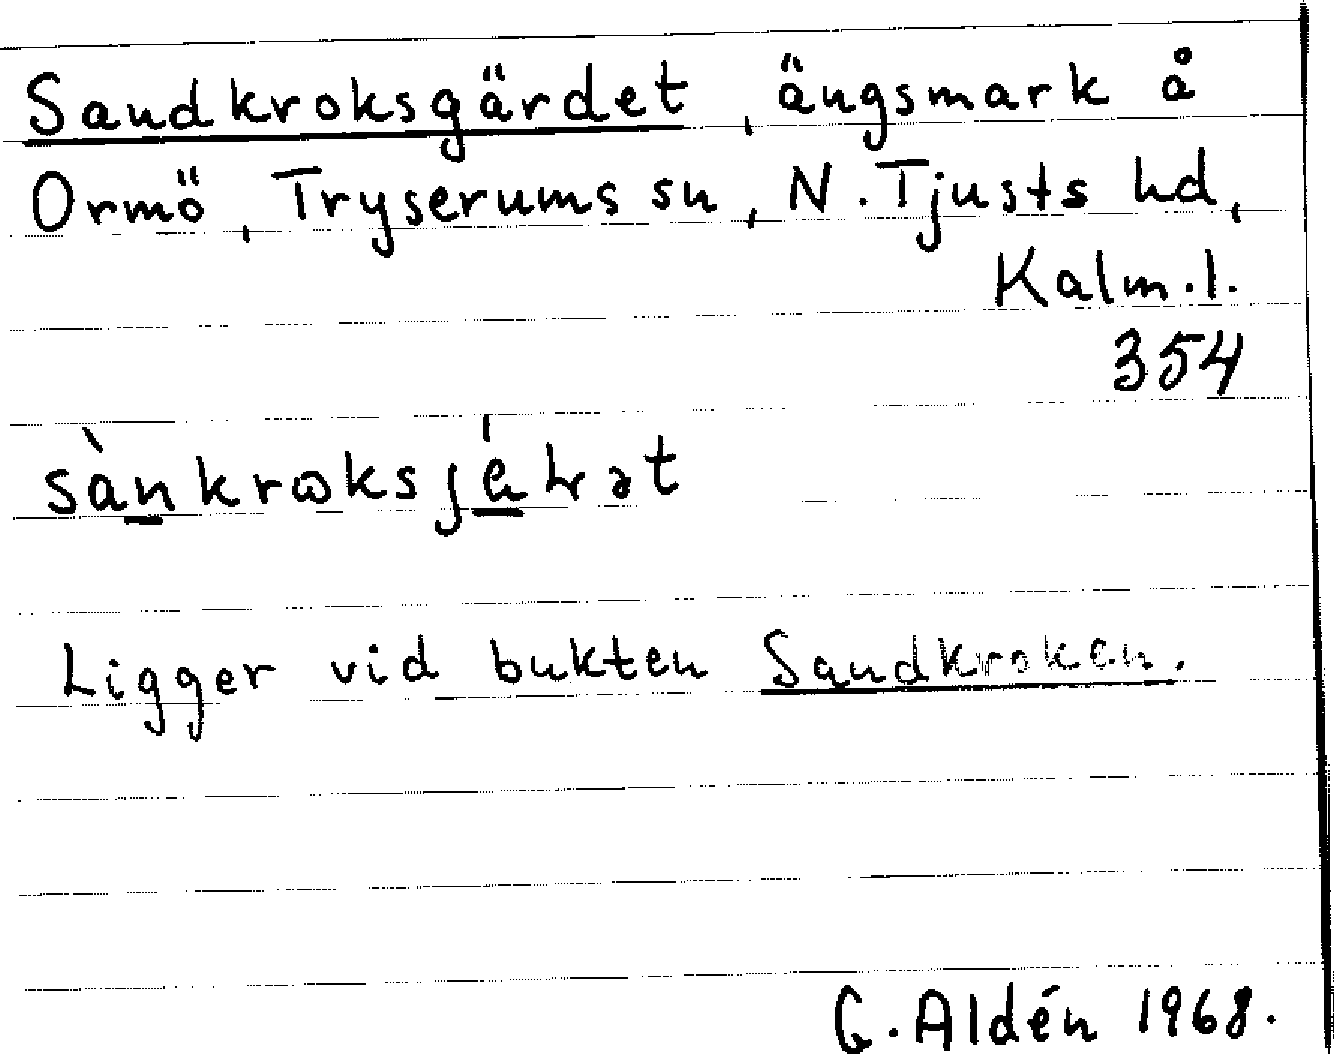 Sandkroksgärdet, ängsmark å
Ormö, Tryserums sn, N. Tjusts hd,
Kalm.l.
354
Ligger vid bukten Sandkroken.
G. Aldén 1968.